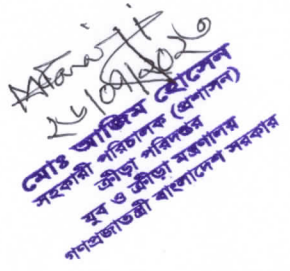 ২৮/০৭/২০২০
মোঃ আজিম হোসেন
সহকারী পরিচালক (প্রশাসন)
ক্রীড়া পরিদপ্তর
যুব ও ক্রীড়া মন্ত্রণালয়
গণপ্রজাতন্ত্রী বাংলাদেশ সরকার